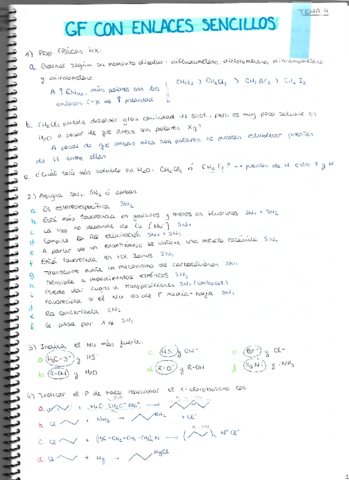 TEMA 4
GF CON ENLACES SENCILLOS
1) Prop. físicas HX:
a. Ordenar según su momento dipolar: difluorometano, diclorometano, dibromometano
y diiodometano
A ↑ EN, más polares son los
enlaces C-X ⇒ ↑ polaridad
CH2F2 > CH2Cl2 > CH2Br2 > CH2I2
b. CH2Cl2 puede disolver gran cantidad de sust., pero es muy poco soluble en
H2O a pesar de que ambos son polares. Xq?
A pesar de que ambos son polares no pueden establecer puentes
de H entre ellos
c. ¿Cuál será más soluble en H2O: CH2Cl2 ó CH2F2? → puentes de H entre F y H
2) Asigna SN1, SN2 ó ambas
a Es estereoespecífica SN2
b Está más favorecida en yoduros y menos en fluoruros SN1 + SN2
c La vrx no depende de la [Nu-] SN1
d Compite la rx eliminación SN1 + SN2
e A partir de un enantiómero se obtiene una mezcla racémica SN1
f Está favorecida en HX 3arios SN1
g Transcurre mediante un mecanismo de carbocationes SN1
h Sensible a impedimentos estéricos SN2
i Puede dar lugar a transposiciones SN1
j Favorecida si el Nu es de F media-baja SN1
k Es concertada SN2
l Se pasa por 1 int SN1
3) Indica el Nu más fuerte.
a H3C-S- y HS-
b R-OH y H2O
c HS- y OH-
d R-O- y R-OH
e Br- y Cl-
f y NR3
4) Indicar el P de hacer reaccionar el 1-clorobutano con
a
b Cl + NH3 → NH2 + Cl-
c Cl
d Cl + Mg → MgCl
1